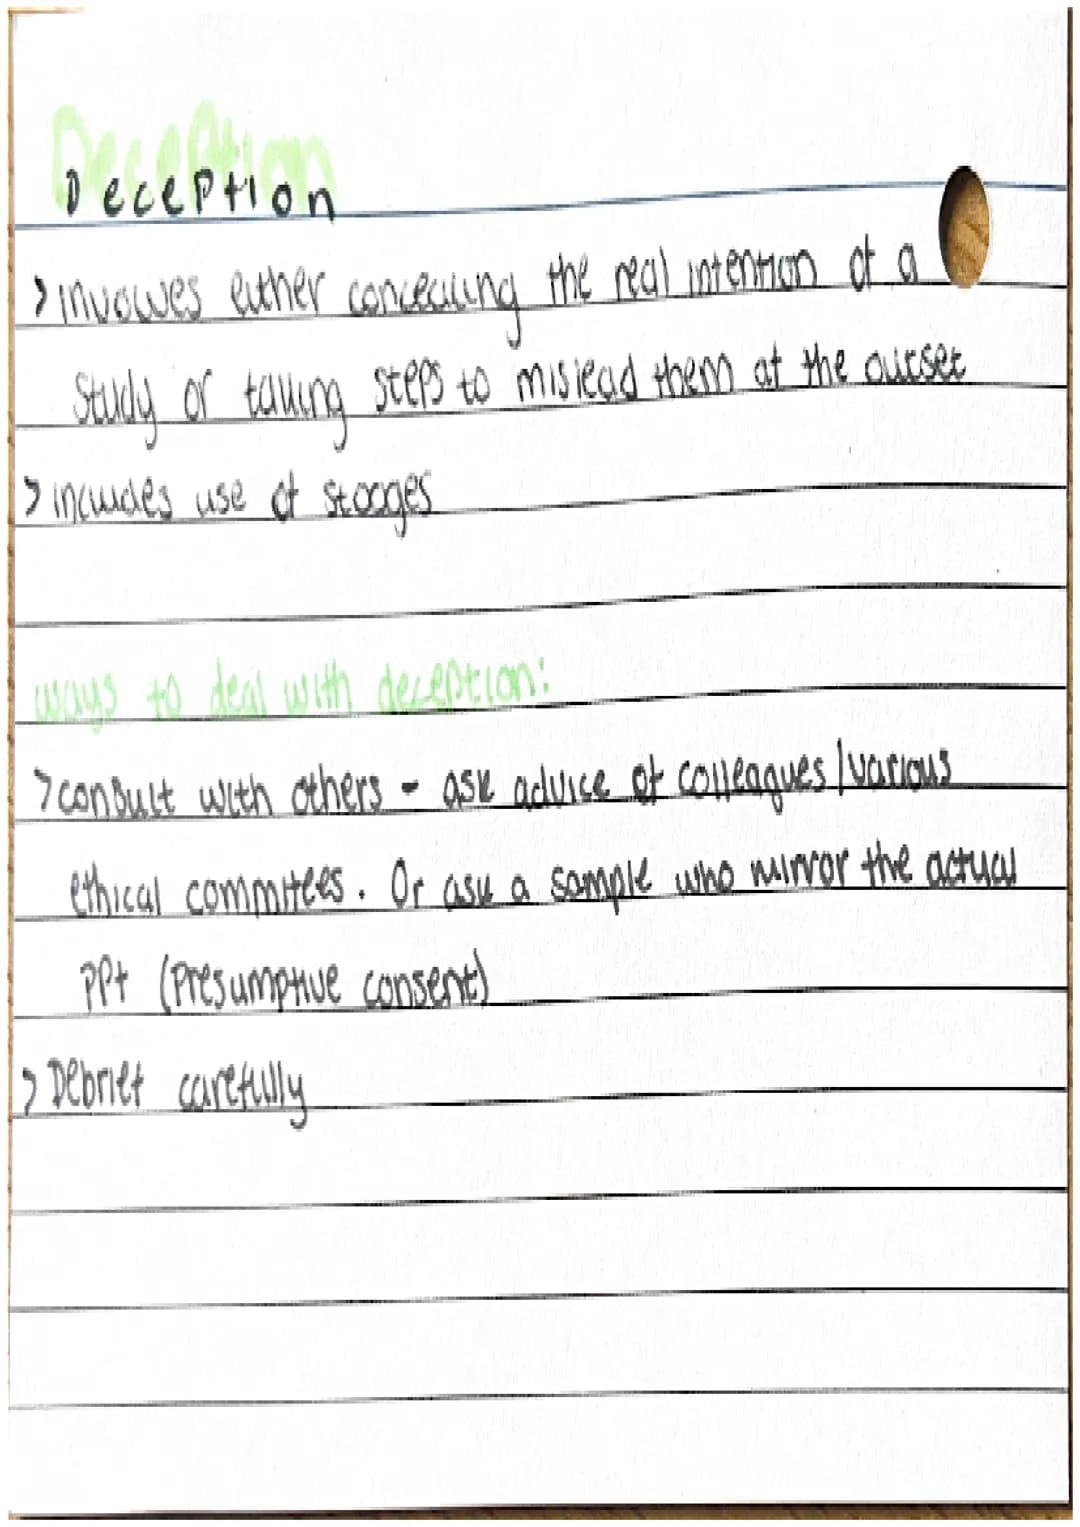 Deception
Deception
> involves either concealing the real intention of a
study or taking steps to mislead them at the outset
> includes use of stooges
ways to deal with deception:
> consult with others - ask advice of colleagues / various
ethical commitees. Or ask a sample who mirror the actual
PPt (Presumptive consent)
> Debrief carefully